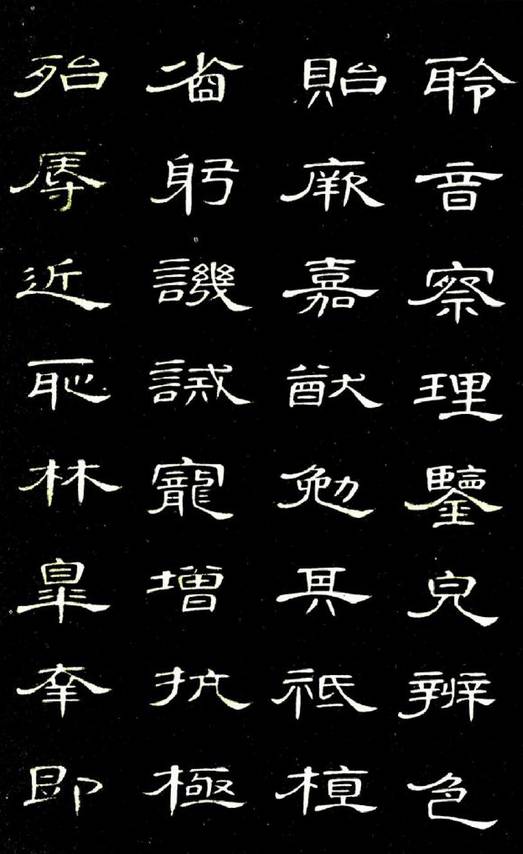 聆音察理鑒皃辨色
貽厥嘉猷勉其祗植
省躬譏誡寵增抗極
殆辱近恥林皋幸即